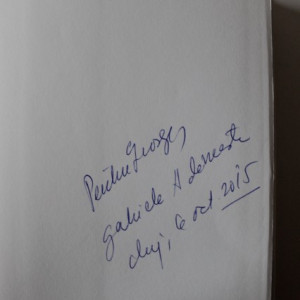 Pentru George,
Gabriela Adameșteanu
Cluj, 6 oct 2015